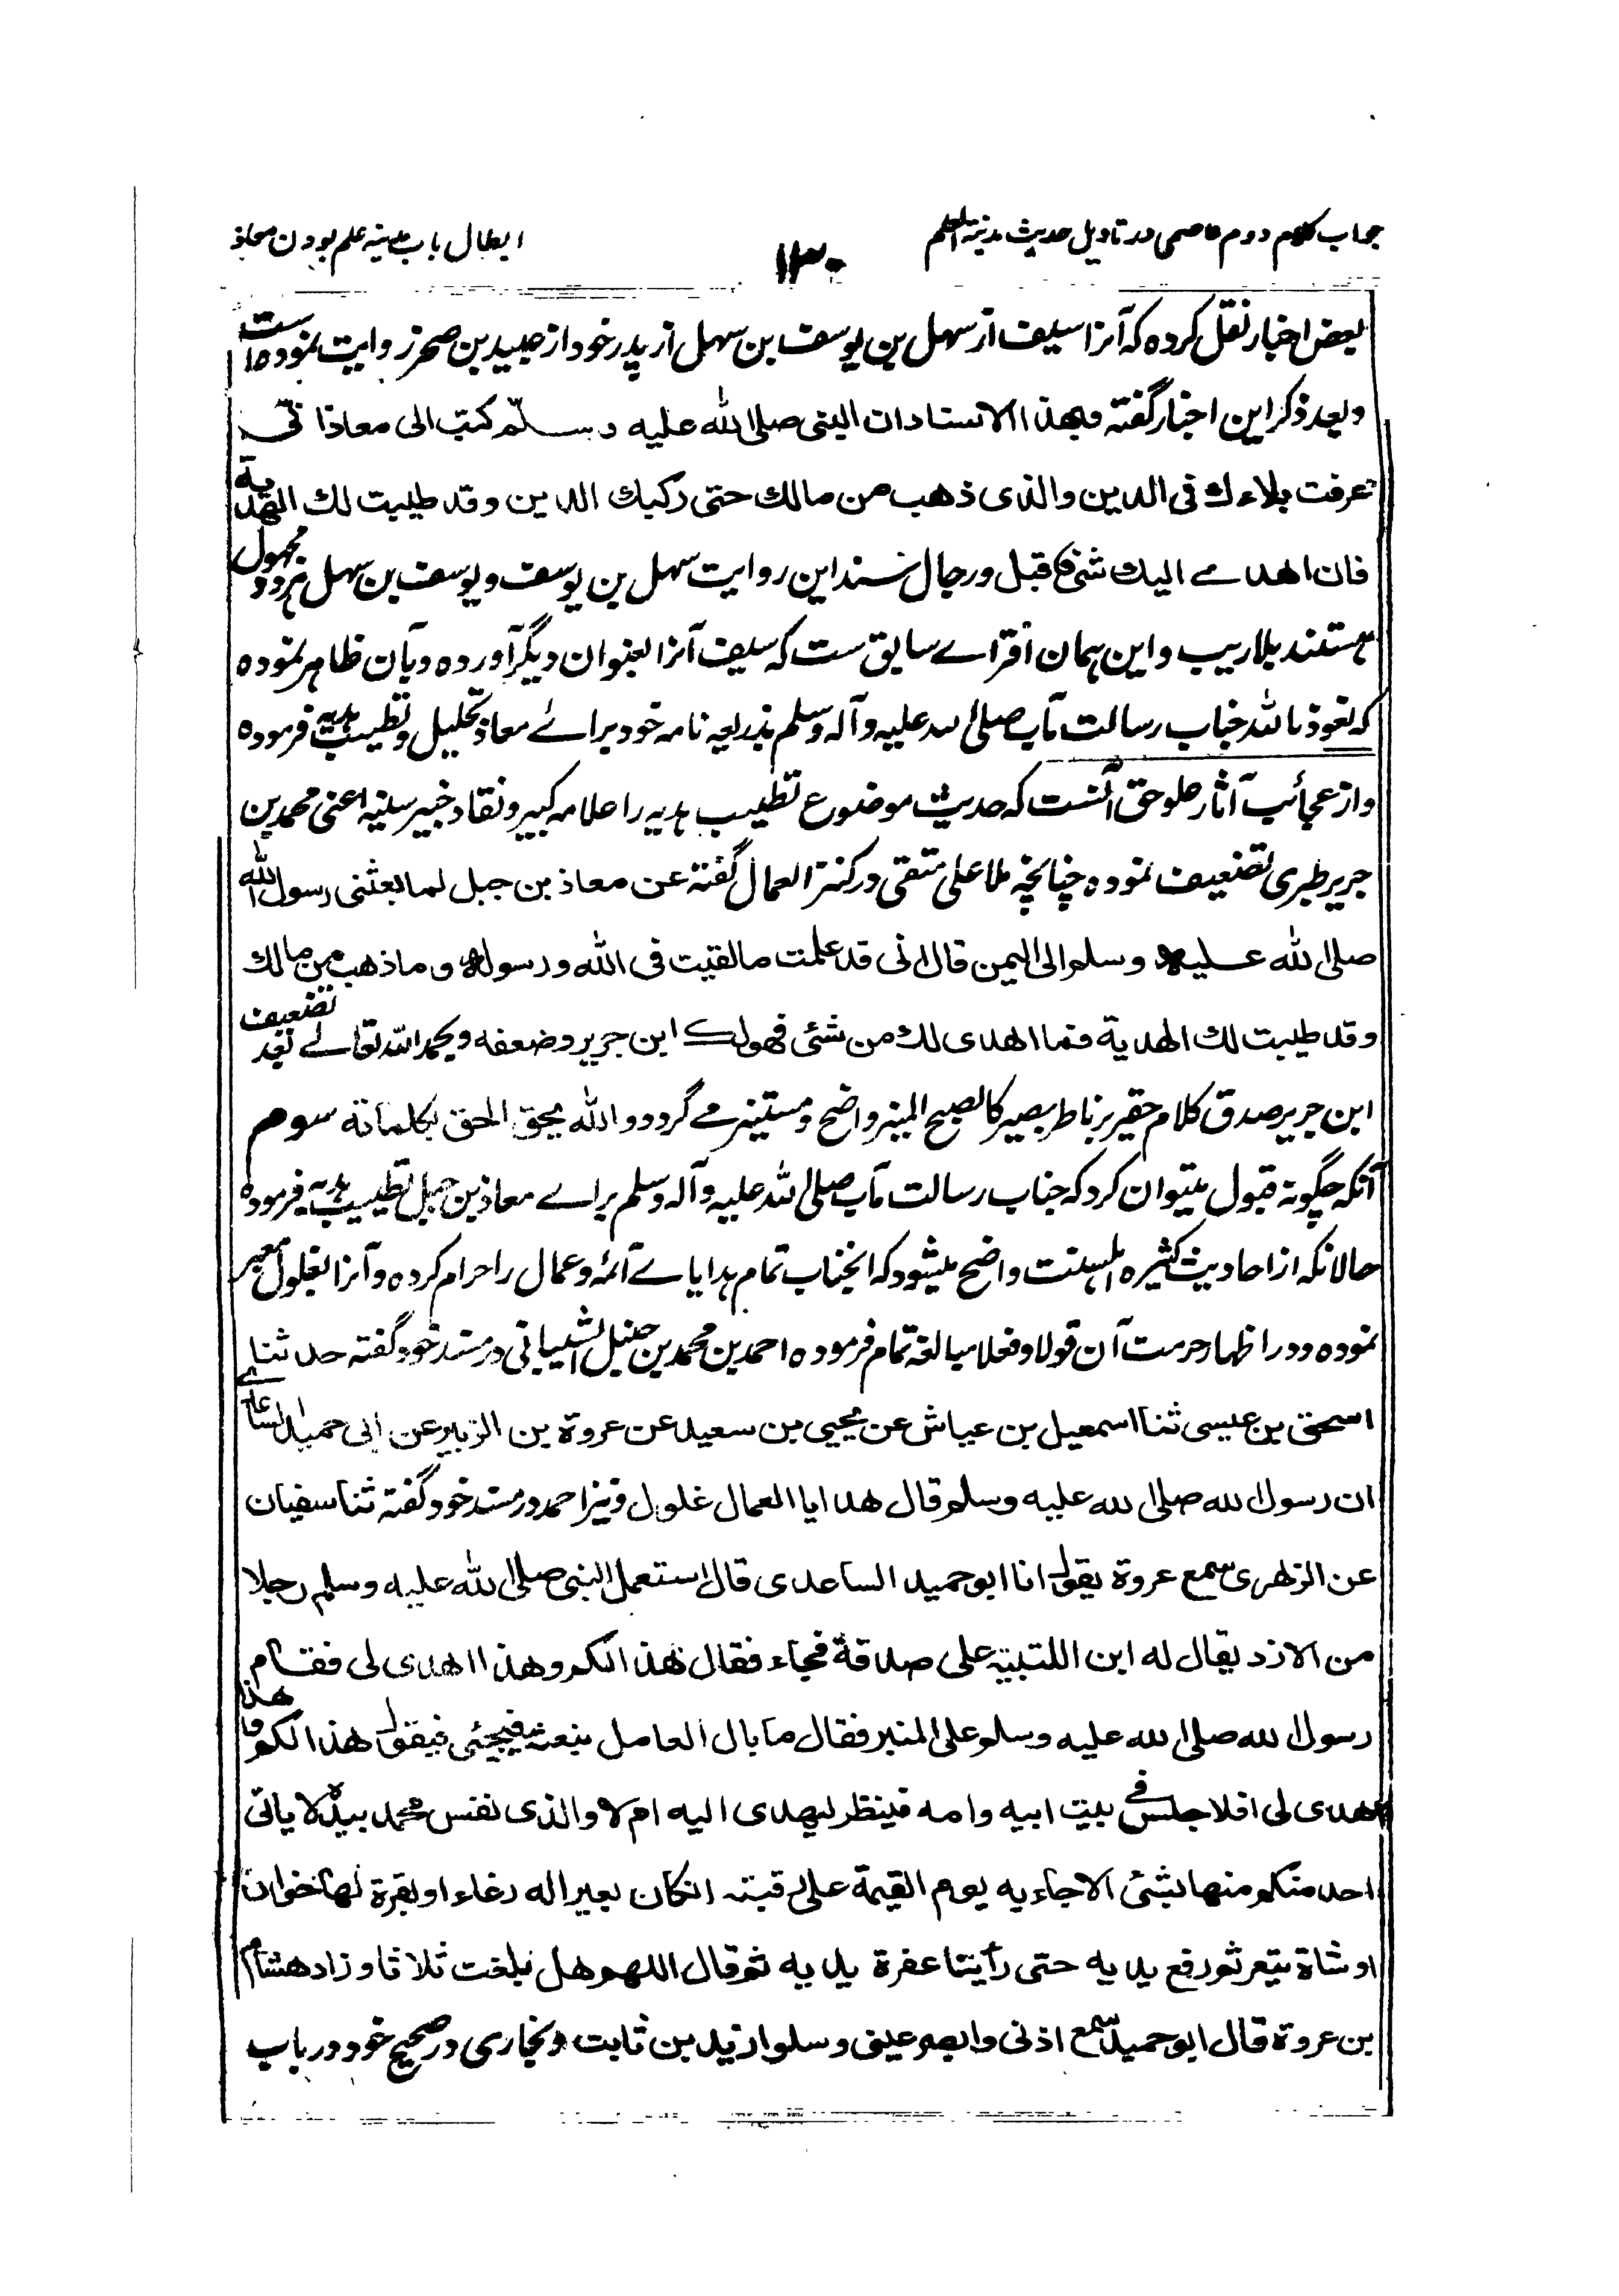 جواب کلام دوم عاصمی در تاویل حدیث مدینة العلم
۱۳۰
ابطال باب مدینه علم بودن معاذ
بعض اخبار نقل کرده که آنرا سیف از سهل بن یوسف بن سهل از پدر خود از عبید بن صخر روایت نموده است
و بعد ذکر این اخبار گفته وبهذا الاسناد ان النبی صلی الله علیه وسلم کتب الی معاذ انی
عرفت بلاءك فی الدین والذی ذهب من مالك حتی رکبك الدین وقد طیبت لك الهدیة
فان اهدی الیك شئ فاقبل و رجال سند این روایت سهل بن یوسف و یوسف بن سهل هر دو مجهول
هستند بلا ریب و این همان افترای سابق ست که سیف آنرا بعنوان دیگر آورده و بآن ظاهر نموده
که نعوذ بالله جناب رسالت مآب صلی الله علیه وآله وسلم بذریعه نامه خود برای معاذ تحلیل و تطییب هدیه فرموده
و از عجائب آثار علو حق آنست که حدیث موضوع تطییب هدیه را علامه کبیر و نقاد خبیر سنیه اعنی محمد بن
جریر طبری تضعیف نموده چنانچه ملا علی متقی در کنز العمال گفته عن معاذ بن جبل لما بعثنی رسول الله
صلی الله علیه وسلم الی الیمن قال انی قد علمت ما لقیت فی الله ورسوله وما ذهب من مالك
وقد طیبت لك الهدیة فما اهدی لك من شئی فهو لك ابن جریر وضعفه و بحمد الله تعالی بعد تضعیف
ابن جریر صدق کلام حقیر بر ناظر بصیر کالصبح المنیر واضح و مستنیر می گردد والله یحق الحق بکلماته سوم
آنکه چگونه قبول میتوان کرد که جناب رسالت مآب صلی الله علیه وآله وسلم برای معاذ بن جبل تطییب هدیه فرموده
حالانکه از احادیث کثیره اهلسنت واضح میشود که آنجناب تمام هدایای ائمه و عمال را حرام کرده و آنرا بغلول معبر
نموده و در اظهار حرمت آن قولا وفعلا مبالغه تمام فرموده احمد بن محمد بن حنبل الشیبانی در مسند خود گفته حدثنا
اسحق بن عیسی ثنا اسمعیل بن عیاش عن یحیی بن سعید عن عروة بن الزبیر عن ابی حمید الساعدی
ان رسول الله صلی الله علیه وسلم قال هدایا العمال غلول و نیز احمد در مسند خود گفته ثنا سفیان
عن الزهری سمع عروة یقول انا ابو حمید الساعدی قال استعمل النبی صلی الله علیه وسلم رجلا
من الازد یقال له ابن اللتبیة علی صدقة فجاء فقال هذا لکم وهذا اهدی لی فقام
رسول الله صلی الله علیه وسلم علی المنبر فقال ما بال العامل نبعثه فیجیئی فیقول هذا لکم وهذا
اهدی لی افلا جلس فی بیت ابیه وامه فینظر لیهدی الیه ام لا والذی نفس محمد بیده لا یاتی
احد منکم منها بشئ الا جاء به یوم القیمة علی رقبته انکان بعیرا له رغاء او بقرة لها خوار
او شاة تیعر ثم رفع یدیه حتی رأینا عفرة یدیه ثم قال اللهم هل بلغت ثلاثا و زاد هشام
بن عروة قال ابو حمید سمع اذنی وابصر عینی وسلوا زید بن ثابت و بخاری در صحیح خود در باب